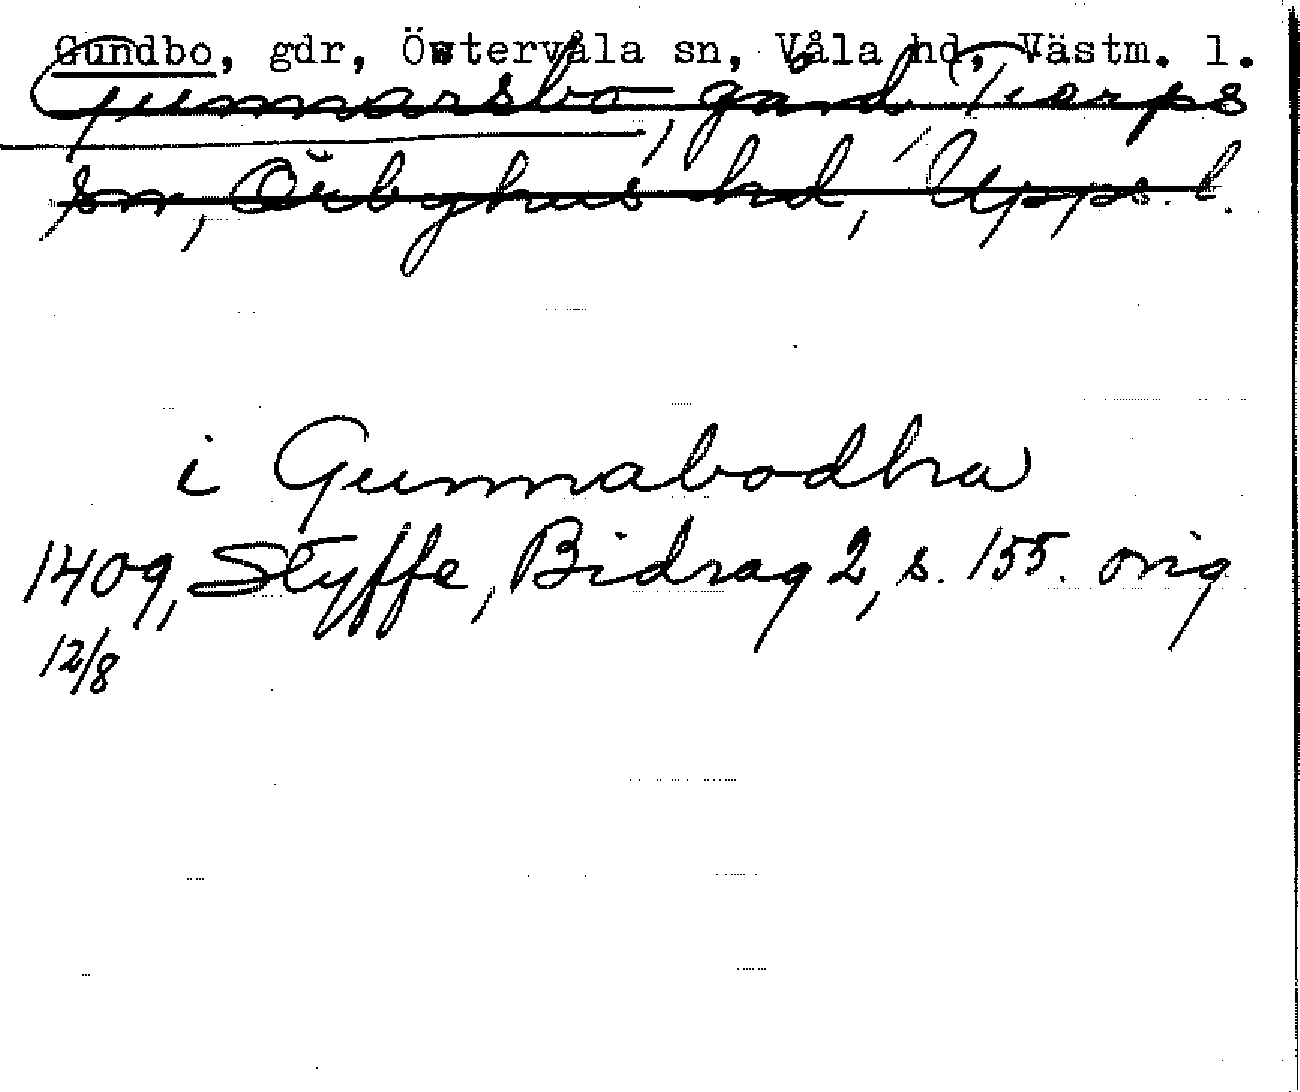 Gundbo, gdr, Östervåla sn, Våla hd, Västm. l.
Gunnarsbo, gård, Tierps
sn, Örbyhus hd, Upps. l.
i Gunnabodha
1409, Styffe, Bidrag 2, s. 155. orig
12/8